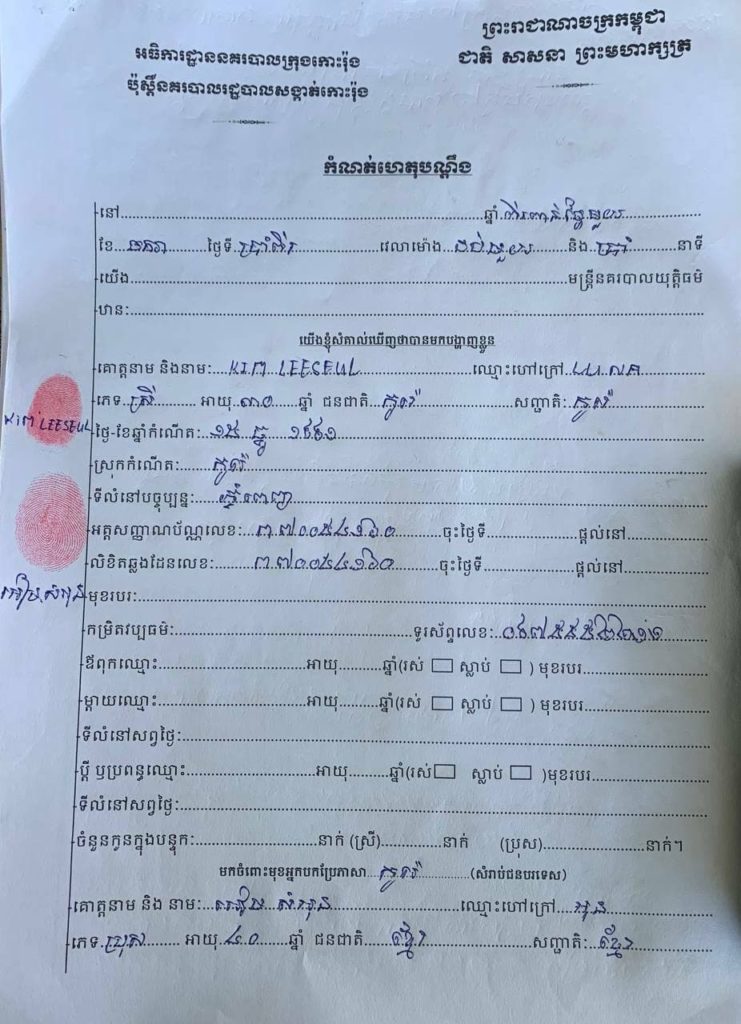 ព្រះរាជាណាចក្រកម្ពុជា
ជាតិ សាសនា ព្រះមហាក្សត្រ
អធិការដ្ឋាននគរបាលក្រុងកោះរ៉ុង
ប៉ុស្តិ៍នគរបាលរដ្ឋបាលសង្កាត់កោះរ៉ុង
កំណត់ហេតុបណ្តឹង
នៅ ឆ្នាំ ពីរពាន់ម្ភៃមួយ
ខែ មករា ថ្ងៃទី ប្រាំពីរ វេលាម៉ោង ដប់មួយ និង ប្រាំ នាទី
យើង មន្ត្រីនគរបាលយុត្តិធម៌
ឋានៈ
យើងខ្ញុំសំគាល់ឃើញថាបានមកបង្ហាញខ្លួន
គោត្តនាម និងនាមៈ KIM LEESEUL ឈ្មោះហៅក្រៅ
ភេទ ស្រី អាយុ ៣០ ឆ្នាំ ជនជាតិ កូរ៉េ សញ្ជាតិៈ កូរ៉េ
KIM LEESEUL ថ្ងៃ-ខែឆ្នាំកំណើតៈ ១៥ ធ្នូ ១៩៩១
ស្រុកកំណើតៈ កូរ៉េ
ទីលំនៅបច្ចុប្បន្នៈ ភ្នំពេញ
អត្តសញ្ញាណប័ណ្ណលេខៈ ចុះថ្ងៃទី ផ្តល់នៅ
លិខិតឆ្លងដែនលេខៈ ចុះថ្ងៃទី ផ្តល់នៅ
មុខរបរៈ
កម្រិតវប្បធម៌ៈ ទូរស័ព្ទលេខៈ
ឪពុកឈ្មោះ អាយុ ឆ្នាំ(រស់ ស្លាប់ ) មុខរបរ
ម្តាយឈ្មោះ អាយុ ឆ្នាំ(រស់ ស្លាប់ ) មុខរបរ
ទីលំនៅសព្វថ្ងៃៈ
ប្តី ឫប្រពន្ធឈ្មោះ អាយុ ឆ្នាំ(រស់ ស្លាប់ )មុខរបរ
ទីលំនៅសព្វថ្ងៃៈ
ចំនួនកូនក្នុងបន្ទុកៈ នាក់ (ស្រី) នាក់ (ប្រុស) នាក់។
មកចំពោះមុខអ្នកបកប្រែភាសា កូរ៉េ (សំរាប់ជនបរទេស)
គោត្តនាម និង នាមៈ ឈ្មោះហៅក្រៅ
ភេទ ប្រុស អាយុ ៤០ ឆ្នាំ ជនជាតិ ខ្មែរ សញ្ជាតិៈ ខ្មែរ